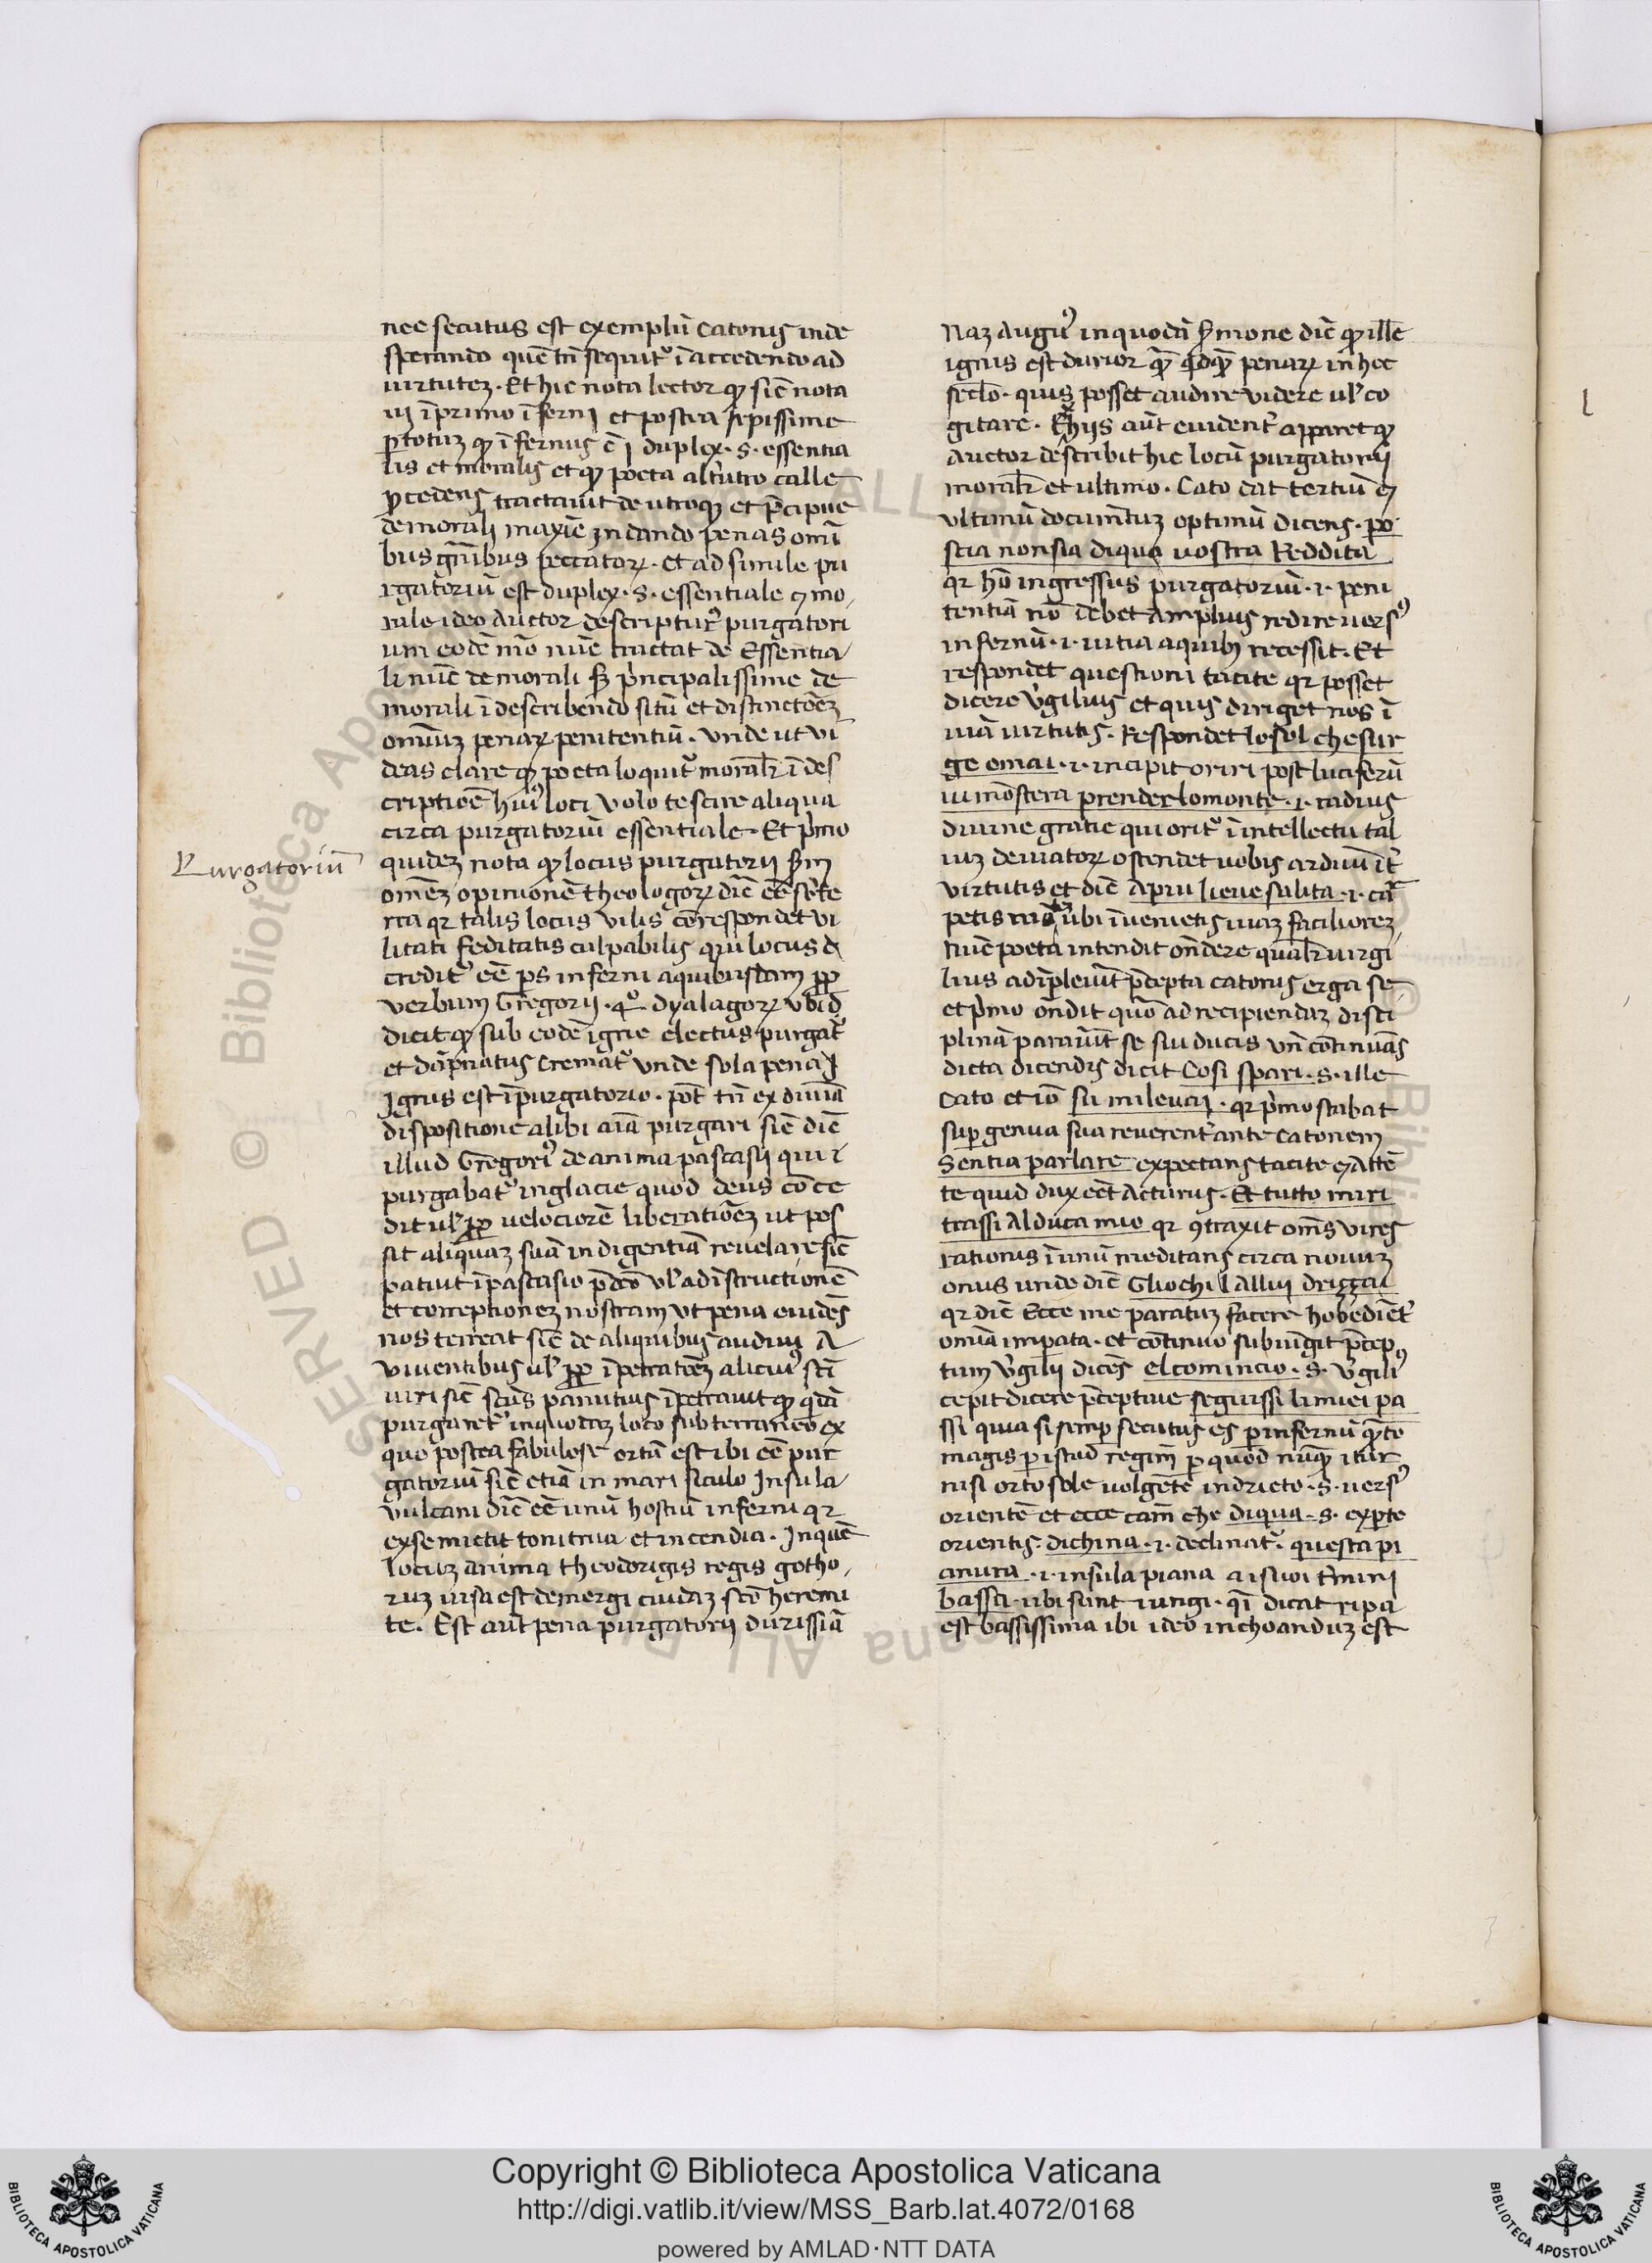 nec secutus est exemplū catonis inde
sperando quē tn̄ sequit᷒ ī accedendo ad
uirtutez. Et hic nota lector ꝙ sic̄ nota
ui ī primo īferni et postea sepissime
ꝑ totuz ꝙ īfernus ē duplex .s. essentia
lis et moralis et ꝙ poeta
ꝓcedens tractauit de utroqꝫ et p̄cipue
de morali maxīe in dando penas omī
bus gn̄ibus peccatoꝝ. et ad simile pu
rgatoriū est duplex .s. essentiale ⁊ mo
rale ideo Auctor descriptur᷒ purgatori
um eodē mō nūc tractat de Essentia
li nūc de morali sꝫ p̓ncipalissime de
morali ī describendo sitū et distinctōez
omniuz penaꝝ penitentiū. vnde ut vi
deas clare ꝙ poeta loquit᷒ moralr̄ ī des
criptiōe hui᷒ loci volo te scire aliqua
circa purgatoriū essentiale. Et p̓mo
Purgatoriū
quidez nota ꝙ locus purgatorij sm̄
omēz opinionē theologoꝝ dic̄ eē te
rra qr talis locus vilis correspondet vi
litati feditatis culpabilis qui locus
credit᷒ eē ps inferni a quibusdam ꝓꝑ
verbum Gregorij .4o. dyalagoꝝ ubi
dicit ꝙ sub eodē igne electus purgat᷒
et dāpnatus cremat᷒ vnde sola pena
ignis est ī purgatorio. pōt tn̄ ex diuīa
dispositione alibi aīa purgari sic̄ dic̄
illud Gregori᷒ de anima pascasij qui
purgabat᷒ in glacie quod deus cōce
dit ul̓ ꝓꝑ velociorē liberatiōez ut pos
sit aliquaz suā indigentiā reuelare sic̄
patuit ī pascasio p̄dc̄o vl̓ ad īstructionē
et correptionez nostram vt pena euidēs
nos terreat sic̄ de aliquibus audiui a
viuentibus ul̓ ꝓꝑ īpetratōez alicui᷒ scī
uiri sic̄ scūs panutius īpetrauit ꝙ qdā
purgaret᷒ in quodaz loco subterraneo ex
quo postea fabulose ortū est ibi eē pur
gatoriū sic̄ etiā in mari siculo Insula
vulcani dic̄ eē unū hostiū inferni qr
ex se mictit tonitrua et incendia. In quē
locuz anima theodorigis regis gotho
ruz uisa est demergi cuidaz scō heremi
te. Est aūt pena purgatorij durissīa
Naz augus᷒ in quodā sermone dic̄ ꝙ ille
ignis est durior qꝫ qdqꝫ penaꝝ in hoc
seclo. quis posset audire videre ul̓ co
gitare. Ex hijs aūt euident᷒ apparet ꝙ
auctor describit hic locū purgatorij
moralr̄ et ultimo. Cato dat tertiū ⁊
vltimū documētuz optimū dicens. po
scia non sia di qua vostra Reddita
qr hō ingressus purgatoriū .i. peni
tentiā nō debet amplius redire uers᷒
infernū .i. uitia a quibꝫ recessit. Et
respondet questioni tacite qr posset
dicere v̓gilius et quis diriget nos ī
uiā uirtutis. Respondet lo sol che sur
ge omai .i. incipit oriri post luciferū
ui mōstera prender lo monte .i. radius
diuine gratie qui orit᷒ ī intellectu tal
iuz deuiatoꝝ ostendet uobis arduū it᷒
virtutis et dic̄ a piu lieue salita .i. ca
petis ubi īuenietis uiaz faciliorez
Nūc poeta intendit on̄dere qualr̄ uirgi
lius adīpleuit p̄cepta catonis erga se
et p̓mo on̄dit quō ad recipiendaz disci
plinā parauit se sui ducis vn̄ continuās
dicta dicendis dicit Cosi spari .s. ille
Cato et iō su mi leuai. qr p̓mo stabat
suꝑ genua sua reuerent᷒ ante catonem
Sentia parlare expectans tacite ⁊ attē
te quid dux eēt acturus. Et tutto mi ri
trassi al duca mio qr 9traxit oms vires
rationis ī unū meditans circa nouuz
onus unde dic̄ Gli ochi allui driççai
qr dic̄ Ecce me paratuz facere hobediēt᷒
omīa imꝑata. et continuo subiūgit p̄cep
tum v̓gilij dicēs el comincio .s. v̓gili᷒
cepit dicere p̄ceptiue seguissi li miei pa
ssi quia si semꝑ secutus es ꝑ infernū qꝫto
magis ꝑ istud regnū ꝑ quod nūqꝫ itur
nisi orto sole uolgēte indrieto .s. uers᷒
orientē et ecce cām che di qua .s. ex ꝑte
orientis. dichina .i. declinat᷒. questa pi
anura .i. insula piana a i suoi t̓mini
bassi. ubi sunt iungi. qī dicat ripa
est bassissima ibi ideo inchoanduz est
Copyright © Biblioteca Apostolica Vaticana
http://digi.vatlib.it/view/MSS_Barb.lat.4072/0168
powered by AMLAD·NTT DATA
BIBLIOTECA APOSTOLICA VATICANA
BIBLIOTECA APOSTOLICA VATICANA